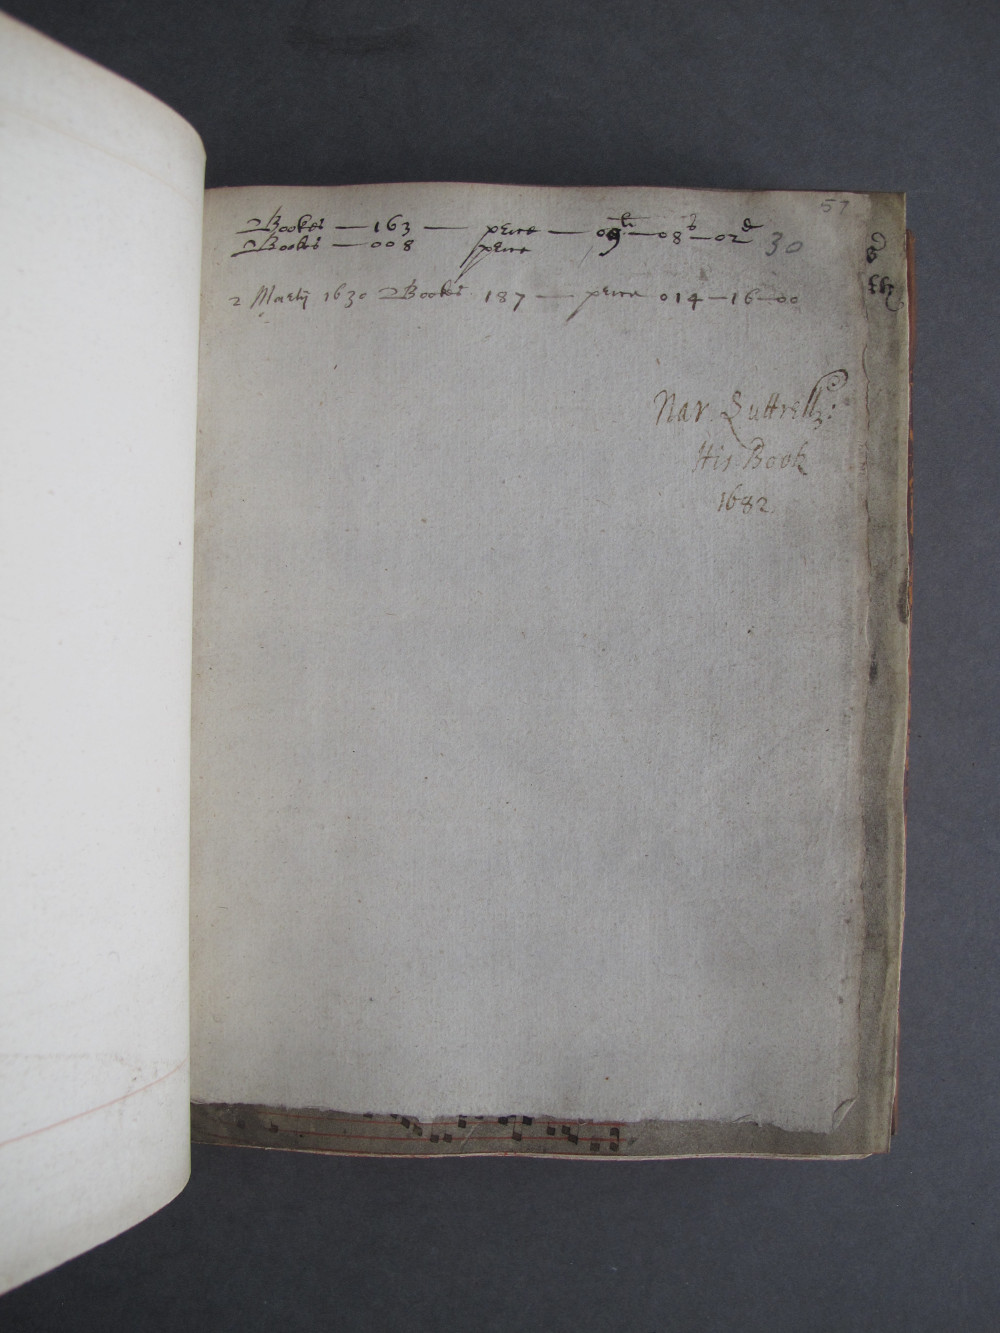 57
Bookes — 163 — price — 09li — 08s — 02d 30
Bookes — 008 price
2 Martij 1630 Bookes 187 — price 014 — 16 — 00
Nar Luttrell:
His Book
1682